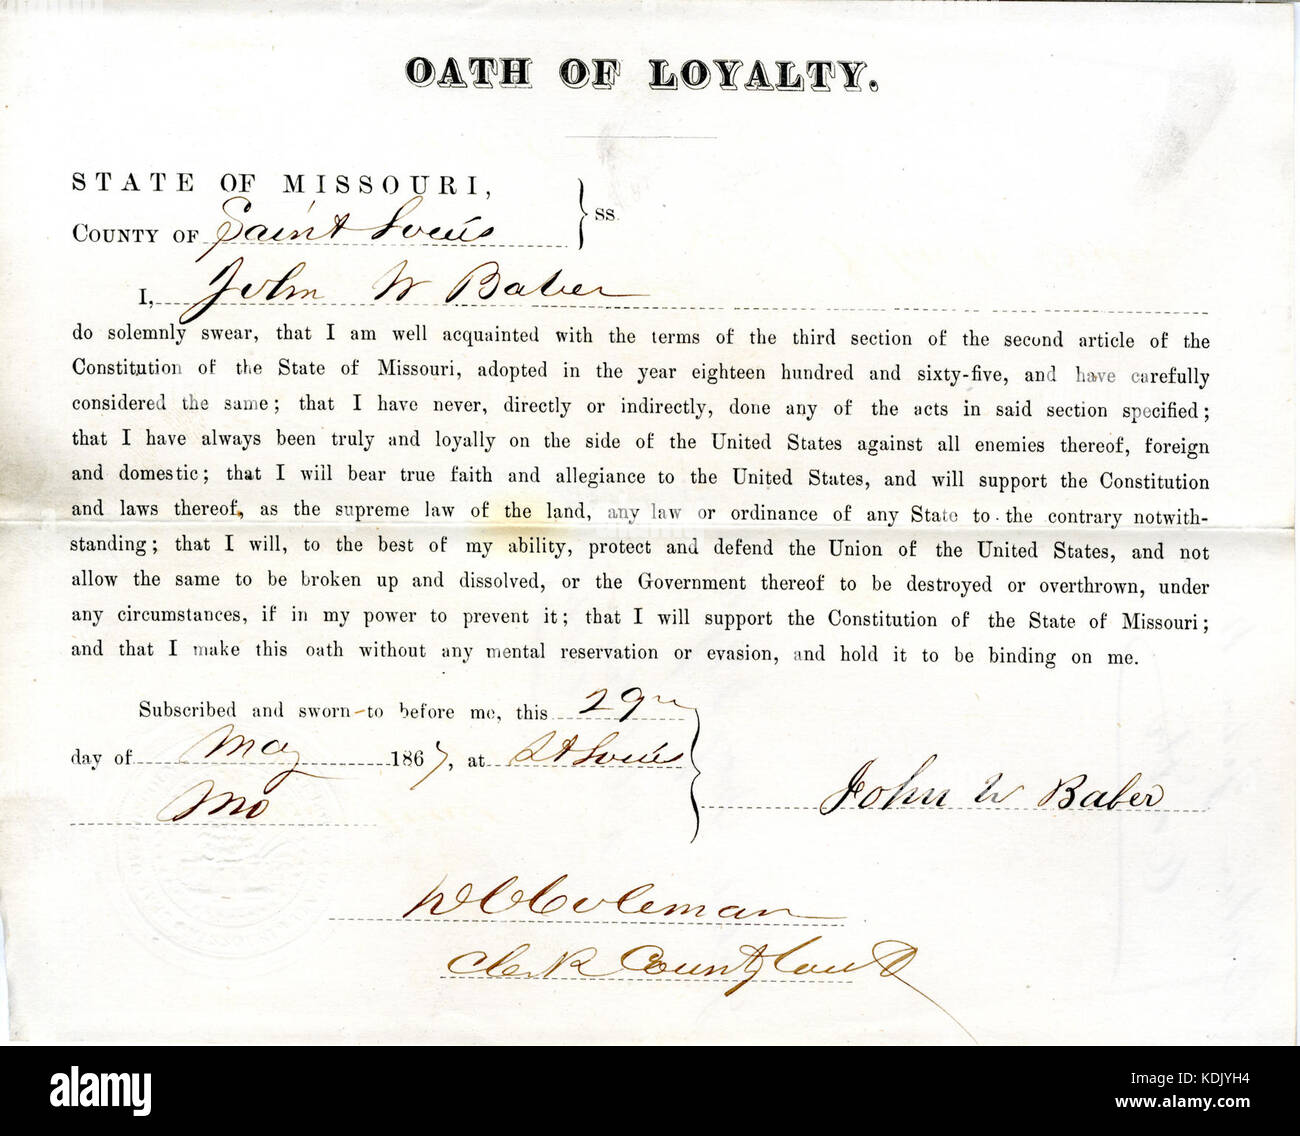 OATH OF LOYALTY.
STATE OF MISSOURI,
COUNTY OF Saint Louis } ss.
I, John W Baber
do solemnly swear, that I am well acquainted with the terms of the third section of the second article of the
Constitution of the State of Missouri, adopted in the year eighteen hundred and sixty-five, and have carefully
considered the same; that I have never, directly or indirectly, done any of the acts in said section specified;
that I have always been truly and loyally on the side of the United States against all enemies thereof, foreign
and domestic; that I will bear true faith and allegiance to the United States, and will support the Constitution
and laws thereof, as the supreme law of the land, any law or ordinance of any State to the contrary notwith-
standing; that I will, to the best of my ability, protect and defend the Union of the United States, and not
allow the same to be broken up and dissolved, or the Government thereof to be destroyed or overthrown, under
any circumstances, if in my power to prevent it; that I will support the Constitution of the State of Missouri;
and that I make this oath without any mental reservation or evasion, and hold it to be binding on me.
Subscribed and sworn to before me, this 29th
day of May 1867, at St Louis
Mo
John W Baber
Coleman
Clerk County Court
alamy
Image ID: KDJYH4
www.alamy.com